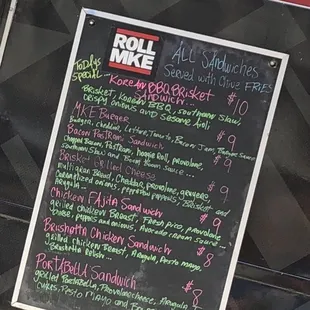 ROLL
MKE
ALL Sandwiches
Served with Cive FRIES
Todays
special
Korean BBQ Brisket
Sandwich... $10
Brisket, Korean BBQ, southwest slaw,
crispy onions and Sesame Aioli,
MKE Burger $9
Burger, Cheddar, Lettuce, Tomato, Bacon Jam,
Bacon Pastrami Sandwich $9
Chopped Bacon, Pastrami, hoagie Roll, provolone,
Southwest Slaw and
Brisket Grilled Cheese $9
multigrain Bread, Cheddar, provolone, gruyere
Caramelized onions, pepperoni peppers, Brisket and
Arugula...
Chicken FAjita Sandwich $9
grilled chicken Breast, Fresh pico, provolone
peppers and onions, Avocado cream sauce
Brushetta Chicken Sandwich $8
grilled chicken Breast, Arugula, pesto mayo,
Brushetta Relish...
PORTABELLA Sandwich $8
grilled Portabella, Provolone cheese, Arugula,
Pesto Mayo and